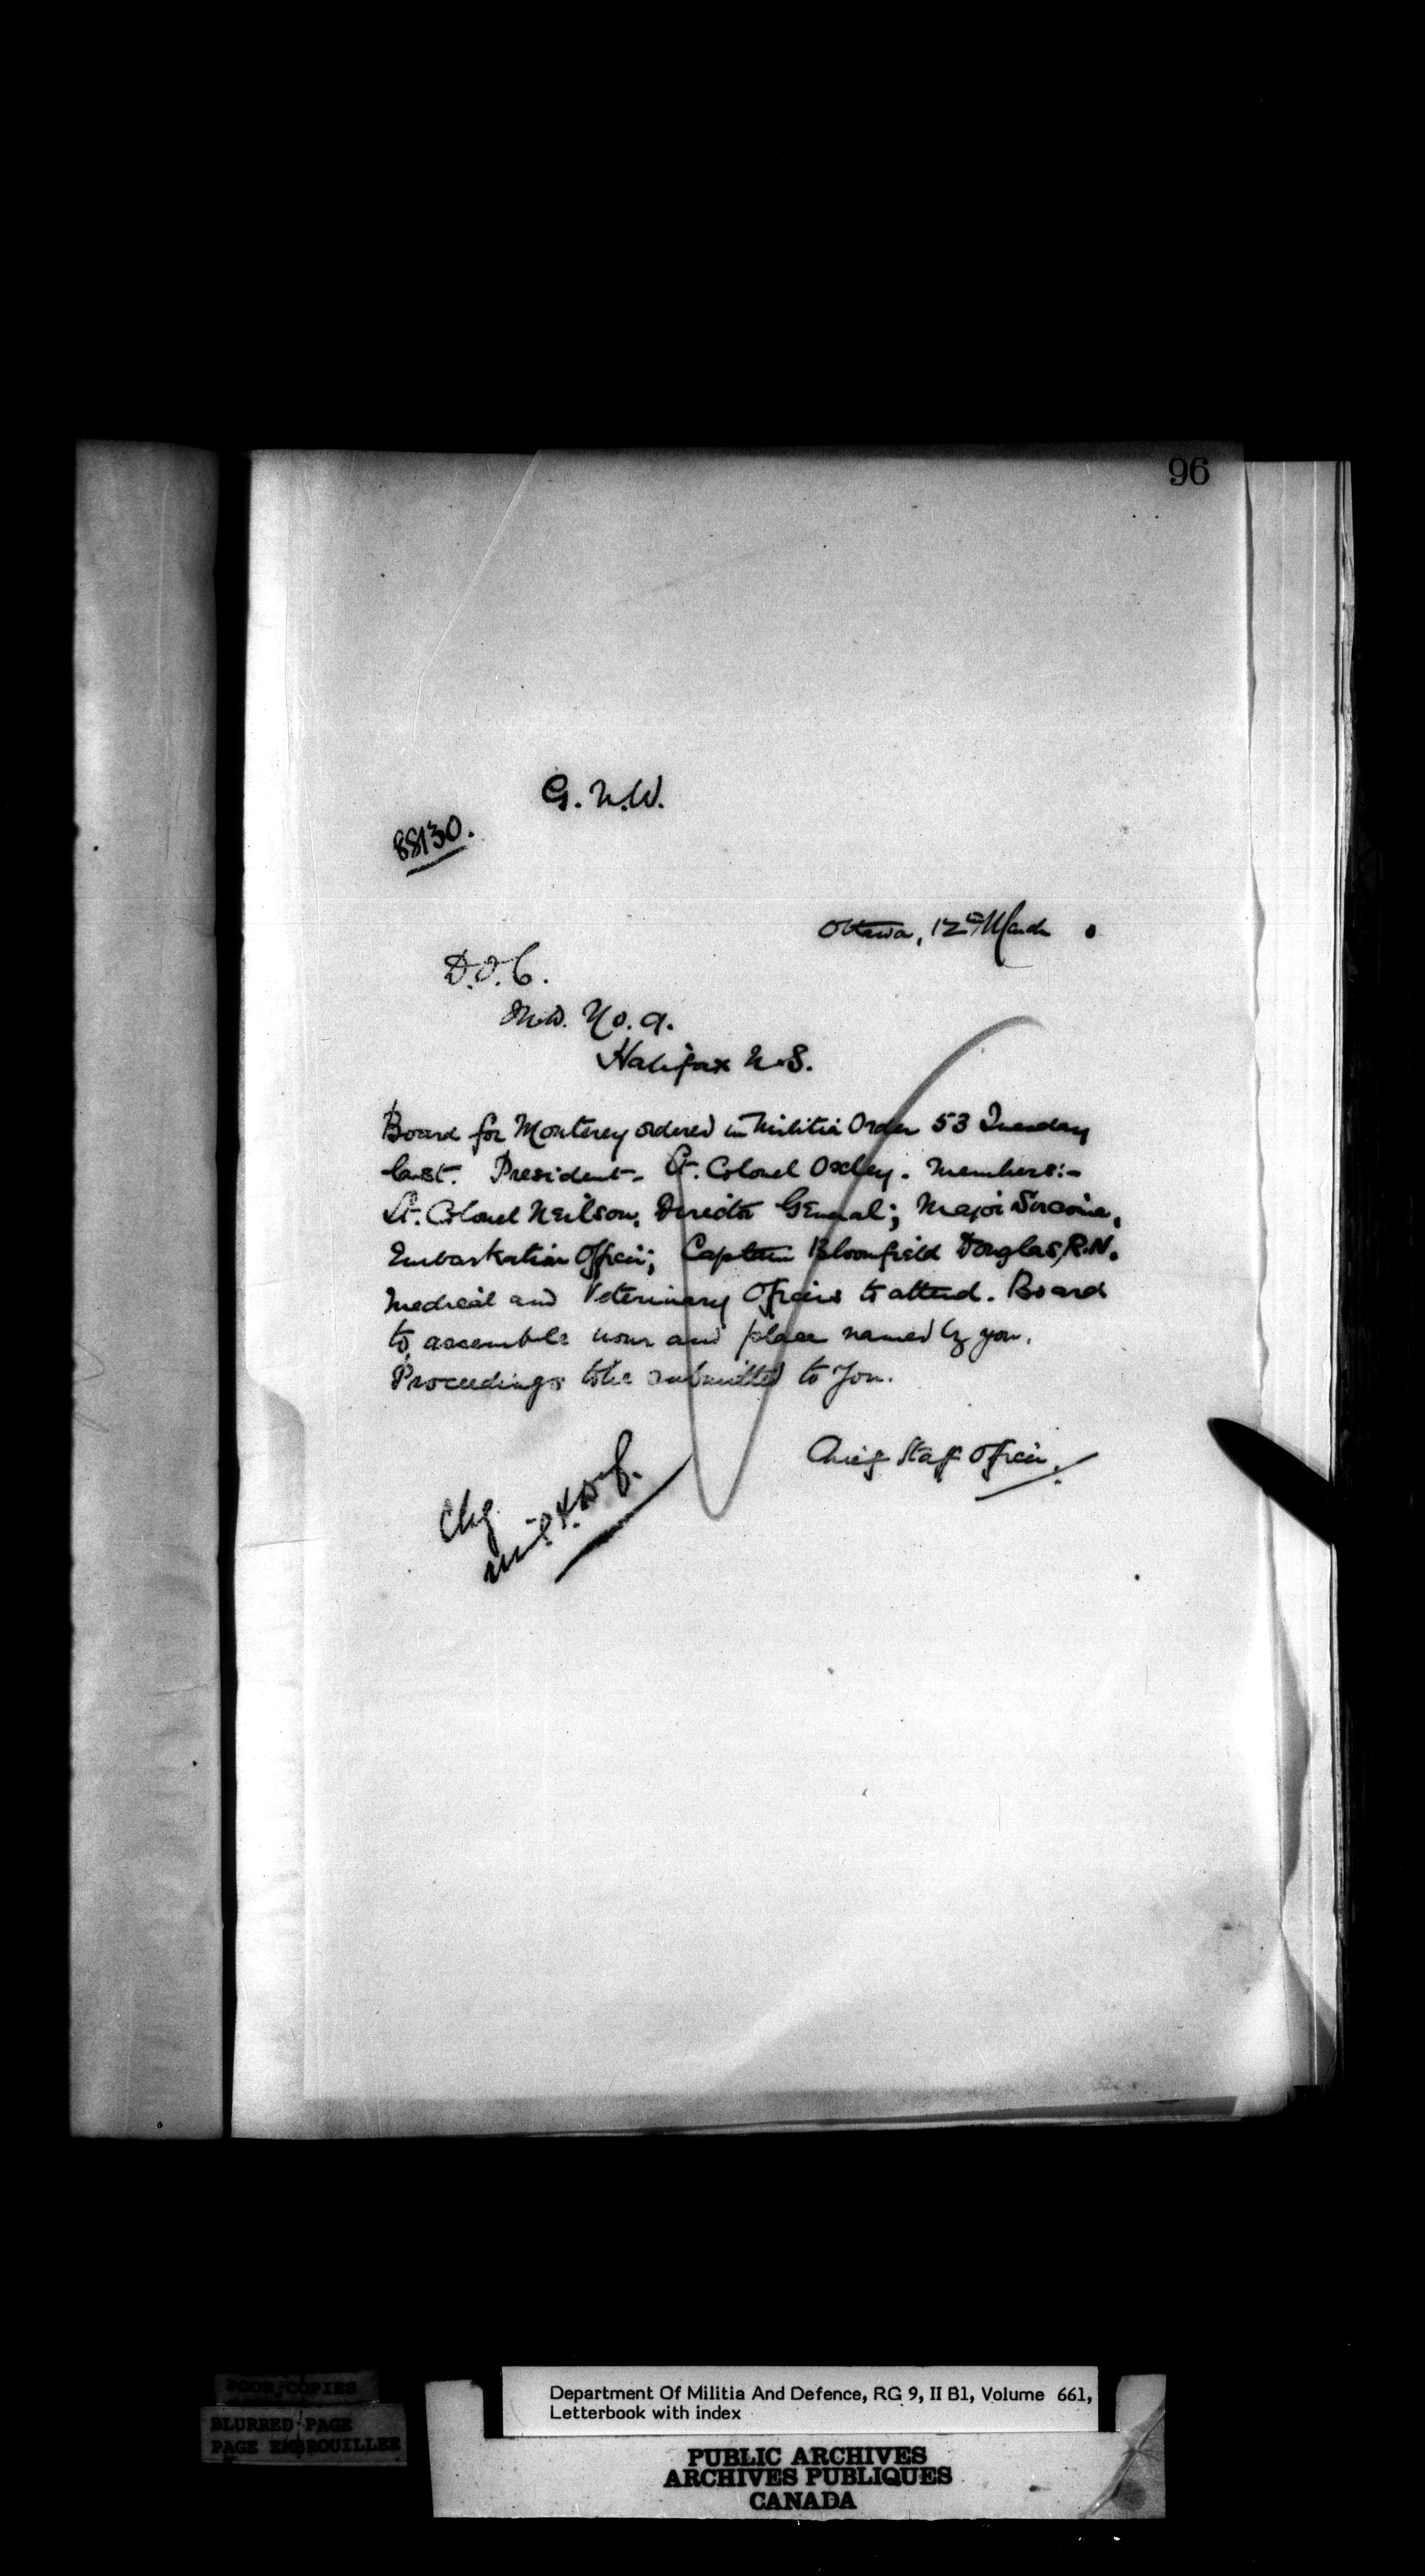 96
G. N.W.
88130.
Ottawa, 12th March
D.O.C.
M.D. No. 9.
Halifax N.S.
Board for Monterey ordered in Militia Order 53 Tuesday
last. President - Lt. Colonel Oxley. Members:-
Lt. Colonel Neilson, Director General; Major
Embarkation Officer; Captain Bloomfield Douglas, R.N.
Medical and Veterinary Officers to attend. Board
to assemble hour and place named by you.
Proceedings to be submitted to you.
Chief Staff Officer.
Chg
Mil & Def.
POOR COPIES
BLURRED PAGE
PAGE EMBROUILLEE
Department Of Militia And Defence, RG 9, II B1, Volume 661,
Letterbook with index
PUBLIC ARCHIVES
ARCHIVES PUBLIQUES
CANADA